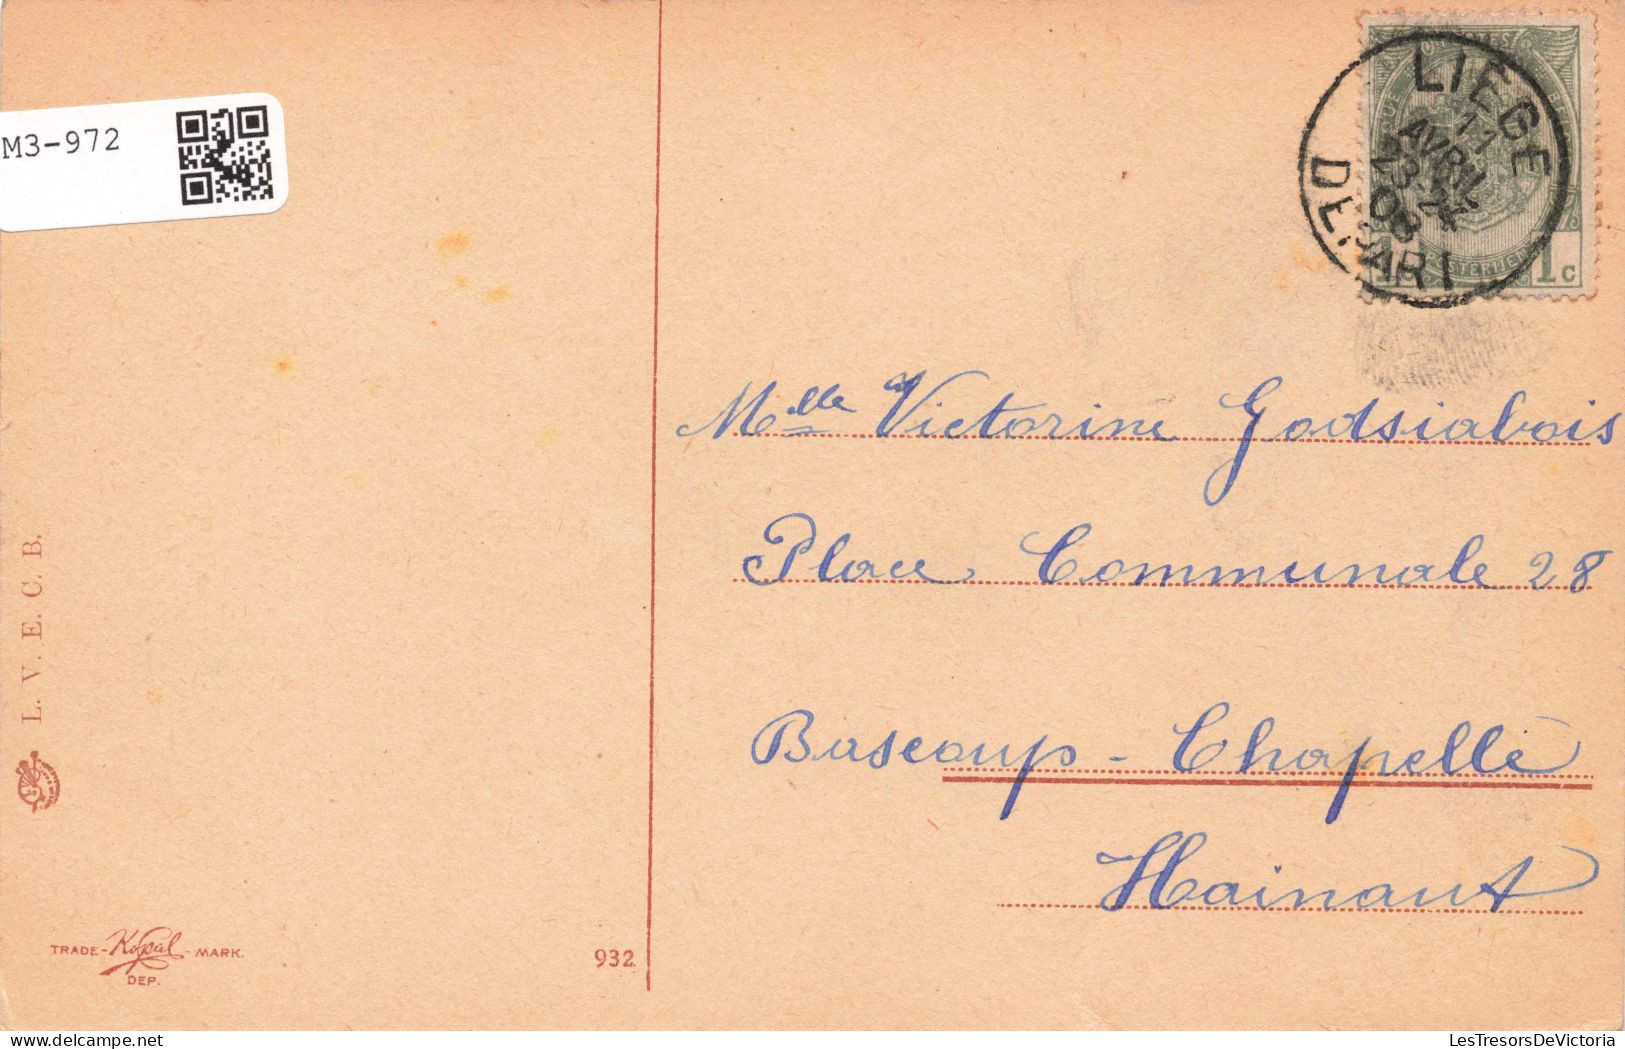 M3-972
LIEGE
11
AVRIL
23-24
08
DEPART
1c
Mlle Victorine Godsiabois
Place Communale 28
Bascoup - Chapelle
Hainaut
L. V. E. C. B.
TRADE - Kopal - MARK.
DEP.
932
LesTresorsDeVictoria